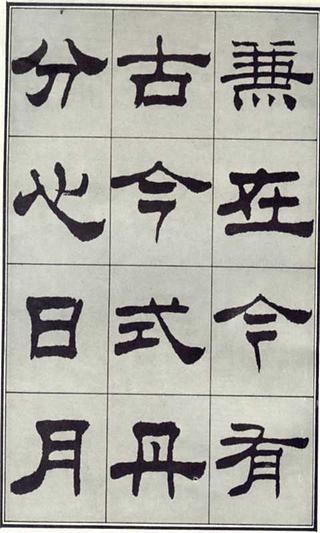 兼在今有
古今式丹
分心日月